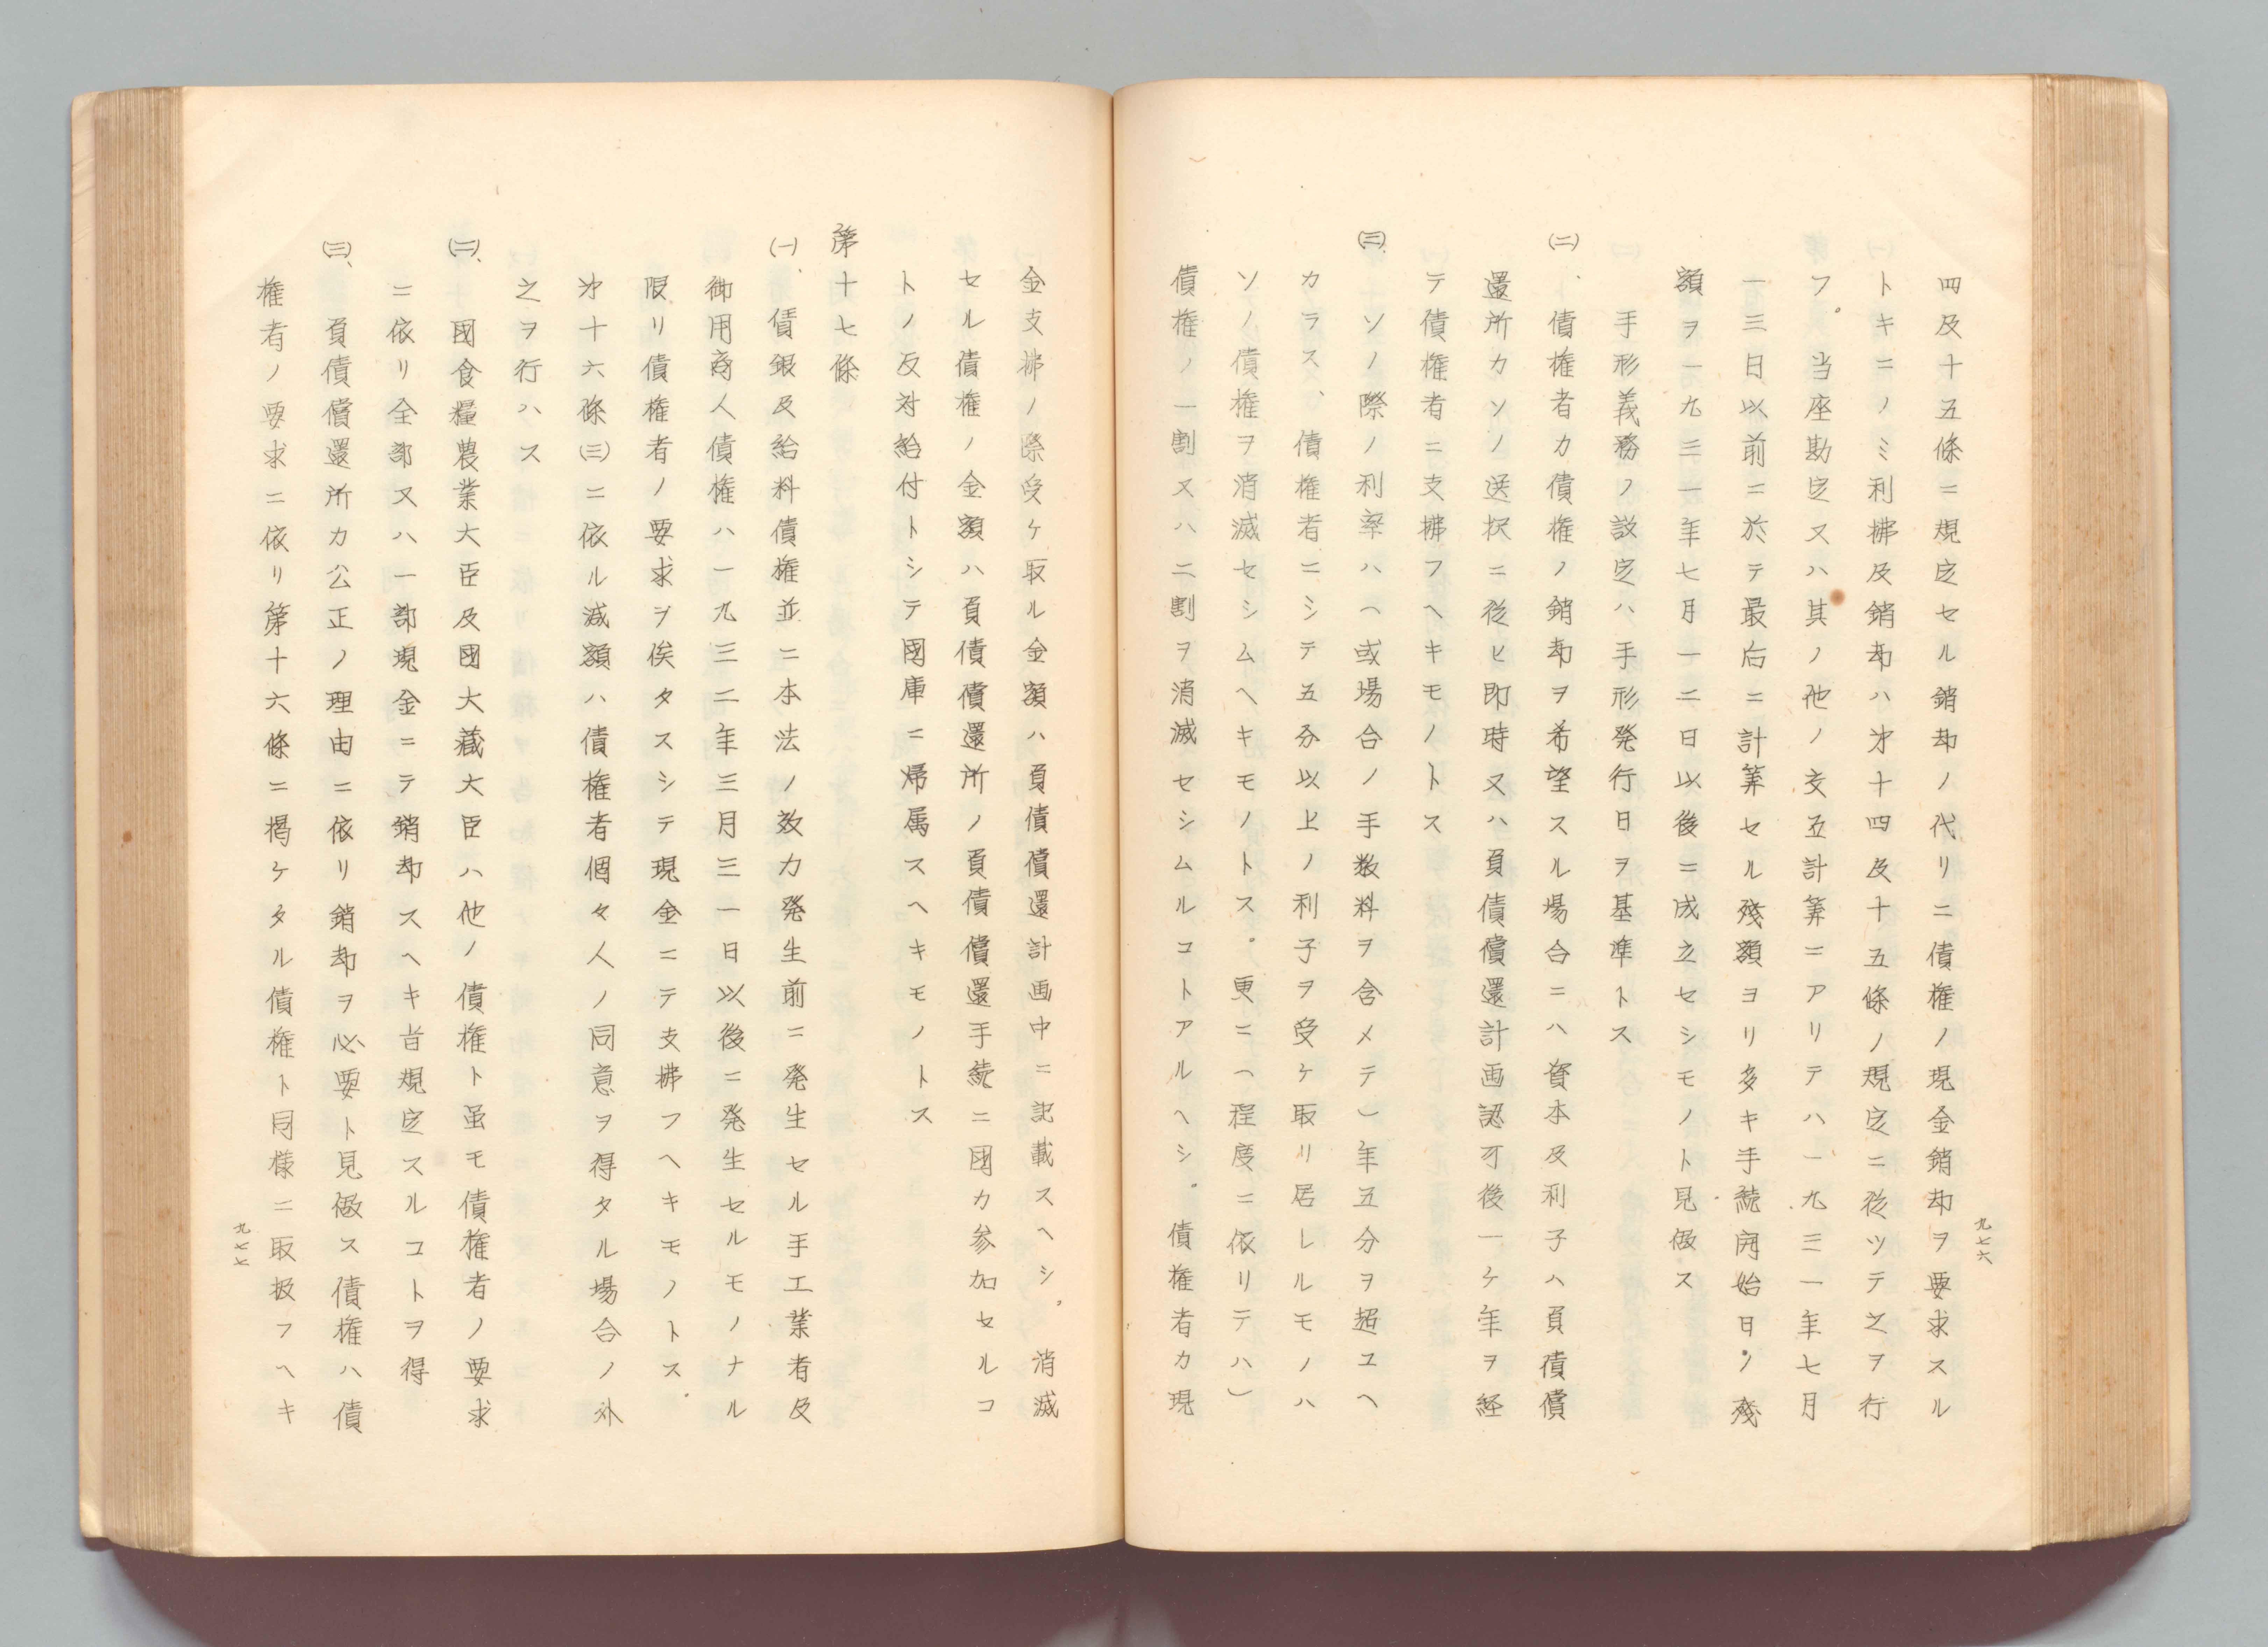 四及十五條ニ規定セル銷却ノ代リニ債権ノ現金銷却ヲ要求スル
トキニノミ利拂及銷却ハ才十四及十五條ノ規定ニ從ツテ之ヲ行
フ。当座勘定又ハ其ノ他ノ交互計算ニアリテハ一九三一年七月
一三日以前ニ於テ最后ニ計算セル残額ヨリ多キ手続開始日ノ残
額ヲ一九三一年七月一二日以後ニ成立セシモノト見做ス
手形義務ノ設定ハ手形発行日ヲ基準トス
(二)、債権者カ債権ノ銷却ヲ希望スル場合ニハ資本及利子ハ負債償
還所カソノ送択ニ從ヒ即時又ハ負債償還計画認可後一ヶ年ヲ経
テ債権者ニ支拂フヘキモノトス
(三)、ソノ際ノ利率ハ(或場合ノ手数料ヲ含メテ)年五分ヲ超ユヘ
カラス、債権者ニシテ五分以上ノ利子ヲ受ケ取リ居レルモノハ
ソノ債権ヲ消滅セシムヘキモノトス。更ニ(程度ニ依リテハ)
債権ノ一割又ハ二割ヲ消滅セシムルコトアルヘシ。債権者カ現
九七六
金支拂ノ際受ケ取ル金額ハ負債償還計画中ニ記載スヘシ。消滅
セル債権ノ金額ハ負債償還所ノ負債償還手続ニ國カ参加セルコ
トノ反対給付トシテ國庫ニ帰属スヘキモノトス
第十七條
(一)、賃銀及給料債権並ニ本法ノ効力発生前ニ発生セル手工業者及
御用商人債権ハ一九三二年三月三一日以後ニ発生セルモノナル
限リ債権者ノ要求ヲ俟タスシテ現金ニテ支拂フヘキモノトス。
才十六條(三)ニ依ル減額ハ債権者個々人ノ同意ヲ得タル場合ノ外
之ヲ行ハス
(二)、國食糧農業大臣及國大蔵大臣ハ他ノ債権ト虽モ債権者ノ要求
ニ依リ全部又ハ一部現金ニテ銷却スヘキ旨規定スルコトヲ得
(三)、負債償還所カ公正ノ理由ニ依リ銷却ヲ必要ト見做ス債権ハ債
権者ノ要求ニ依リ第十六條ニ掲ケタル債権ト同様ニ取扱フヘキ
九七七